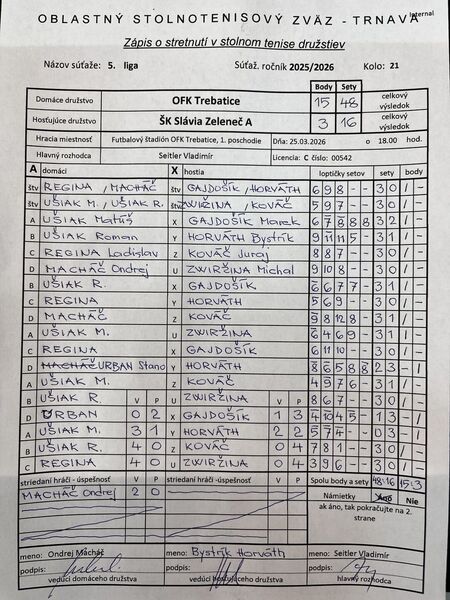 Internal
OBLASTNÝ STOLNOTENISOVÝ ZVÄZ - TRNAVA
Zápis o stretnutí v stolnom tenise družstiev
Názov súťaže: 5. liga Súťaž. ročník 2025/2026 Kolo: 21
Body Sety
Domáce družstvo OFK Trebatice 15 48 celkový výsledok
Hosťujúce družstvo ŠK Slávia Zeleneč A 3 16 celkový výsledok
Hracia miestnosť Futbalový štadión OFK Trebatice, 1. poschodie Dňa: 25.03.2026 o 18.00 hod.
Hlavný rozhodca Seitler Vladimír Licencia: C číslo: 00542
A domáci X hostia loptičky setov sety body
štv REGINA, MACHÁČ štv GAJDOŠÍK, HORVÁTH 6 9 8 - - 3 0 1 -
štv UŠIAK M., UŠIAK R. štv ZWIRŽINA, KOVÁČ 5 9 7 - - 3 0 1 -
A UŠIAK Matúš X GAJDOŠÍK Marek 6 7 8 8 8 3 2 1 -
B UŠIAK Roman Y HORVÁTH Bystrík 9 11 11 5 - 3 1 1 -
C REGINA Ladislav Z KOVÁČ Juraj 8 8 7 - - 3 0 1 -
D MACHÁČ Ondrej U ZWIRŽINA Michal 9 10 8 - - 3 0 1 -
B UŠIAK R. X GAJDOŠÍK 6 6 7 7 - 3 1 1 -
C REGINA Y HORVÁTH 5 6 9 - - 3 0 1 -
D MACHÁČ Z KOVÁČ 9 8 12 8 - 3 1 1 -
A UŠIAK M. U ZWIRŽINA 6 4 6 9 - 3 1 1 -
C REGINA X GAJDOŠÍK 6 11 10 - - 3 0 1 -
D MACHÁČ URBAN Stano Y HORVÁTH 8 6 5 8 8 2 3 - 1
A UŠIAK M. Z KOVÁČ 4 9 7 6 - 3 1 1 -
B UŠIAK R. V P U ZWIRŽINA V P 8 6 7 - - 3 0 1 -
D URBAN 0 2 X GAJDOŠÍK 1 3 4 10 4 5 - 1 3 - 1
A UŠIAK M. 3 1 Y HORVÁTH 2 2 5 7 4 - - 0 3 - 1
B UŠIAK R. 4 0 Z KOVÁČ 0 4 7 8 1 - - 3 0 1 -
C REGINA 4 0 U ZWIRŽINA 0 4 3 9 6 - - 3 0 1 -
striedaní hráči - úspešnosť V P striedaní hráči - úspešnosť V P Spolu body a sety 48:16 15:3
MACHÁČ Ondrej 2 0 Námietky Áno Nie
ak áno, tak pokračujte na 2. strane
meno: Ondrej Macháč meno: Bystrík Horváth meno: Seitler Vladimír
podpis: podpis: podpis:
vedúci domáceho družstva vedúci hosťujúceho družstva hlavný rozhodca